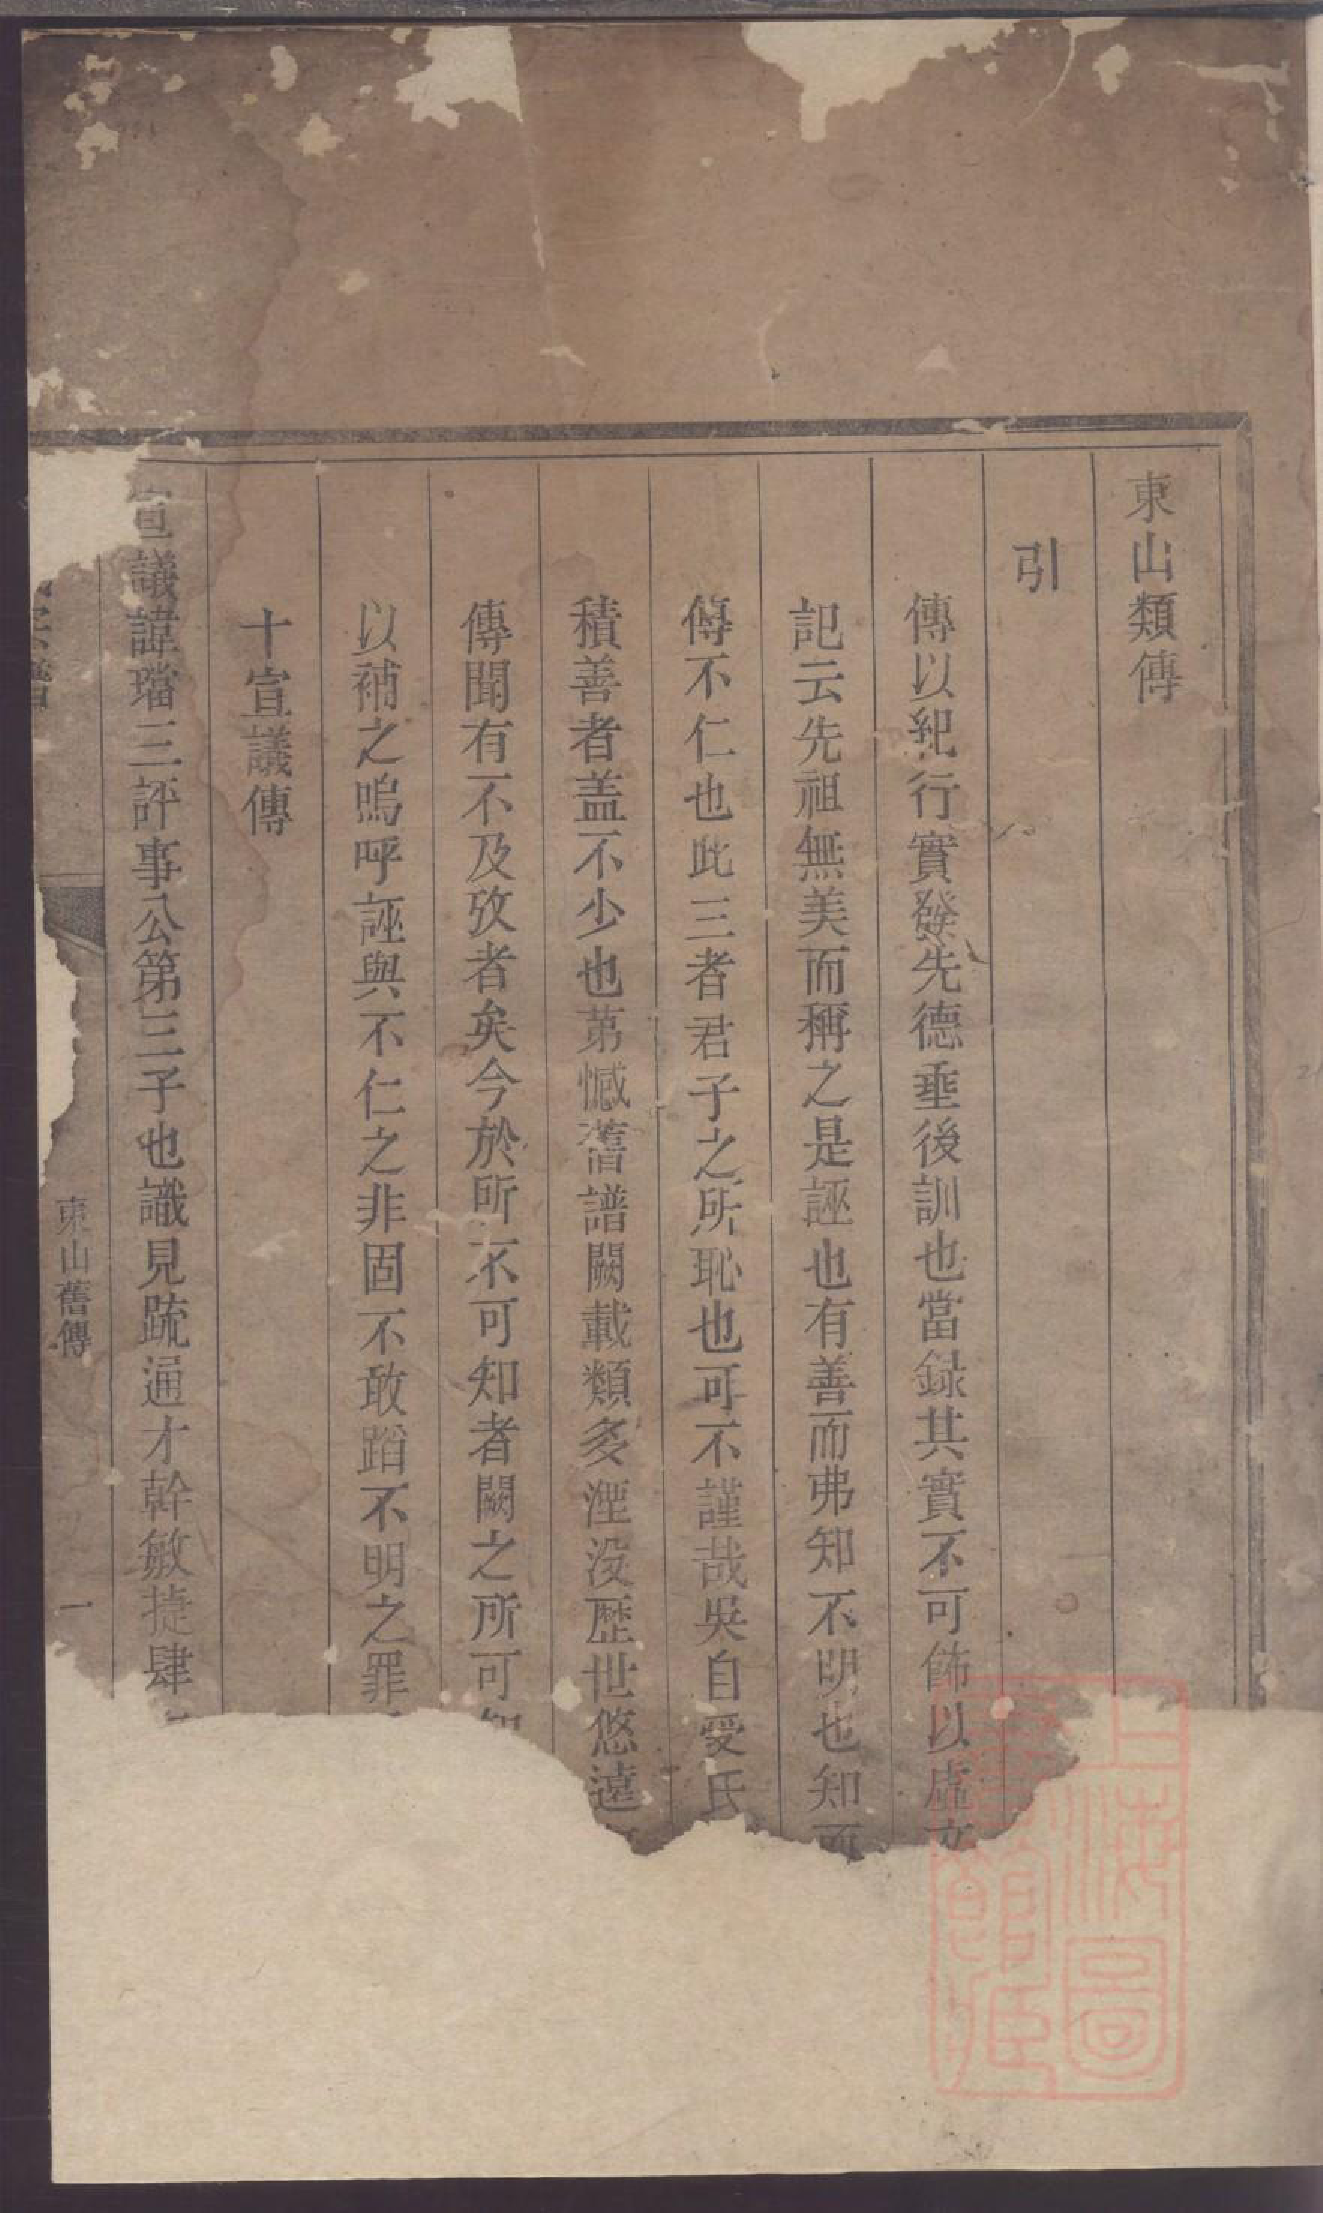 東山類傳
引
傳以紀行實發先德垂後訓也當録其實不可飾以虛文
記云先祖無美而稱之是誣也有善而弗知不明也知而
傳不仁也此三者君子之所恥也可不謹哉吳自受氏
積善者盖不少也苐憾舊譜闕載類多湮没歴世悠遠
傳聞有不及攷者矣今於所不可知者闕之所可知
以補之嗚呼誣與不仁之非固不敢蹈不明之罪
十宣議傳
宣議諱璫三評事公第三子也識見疏通才幹敏捷肆
東山舊傳
一
上海圖書館藏